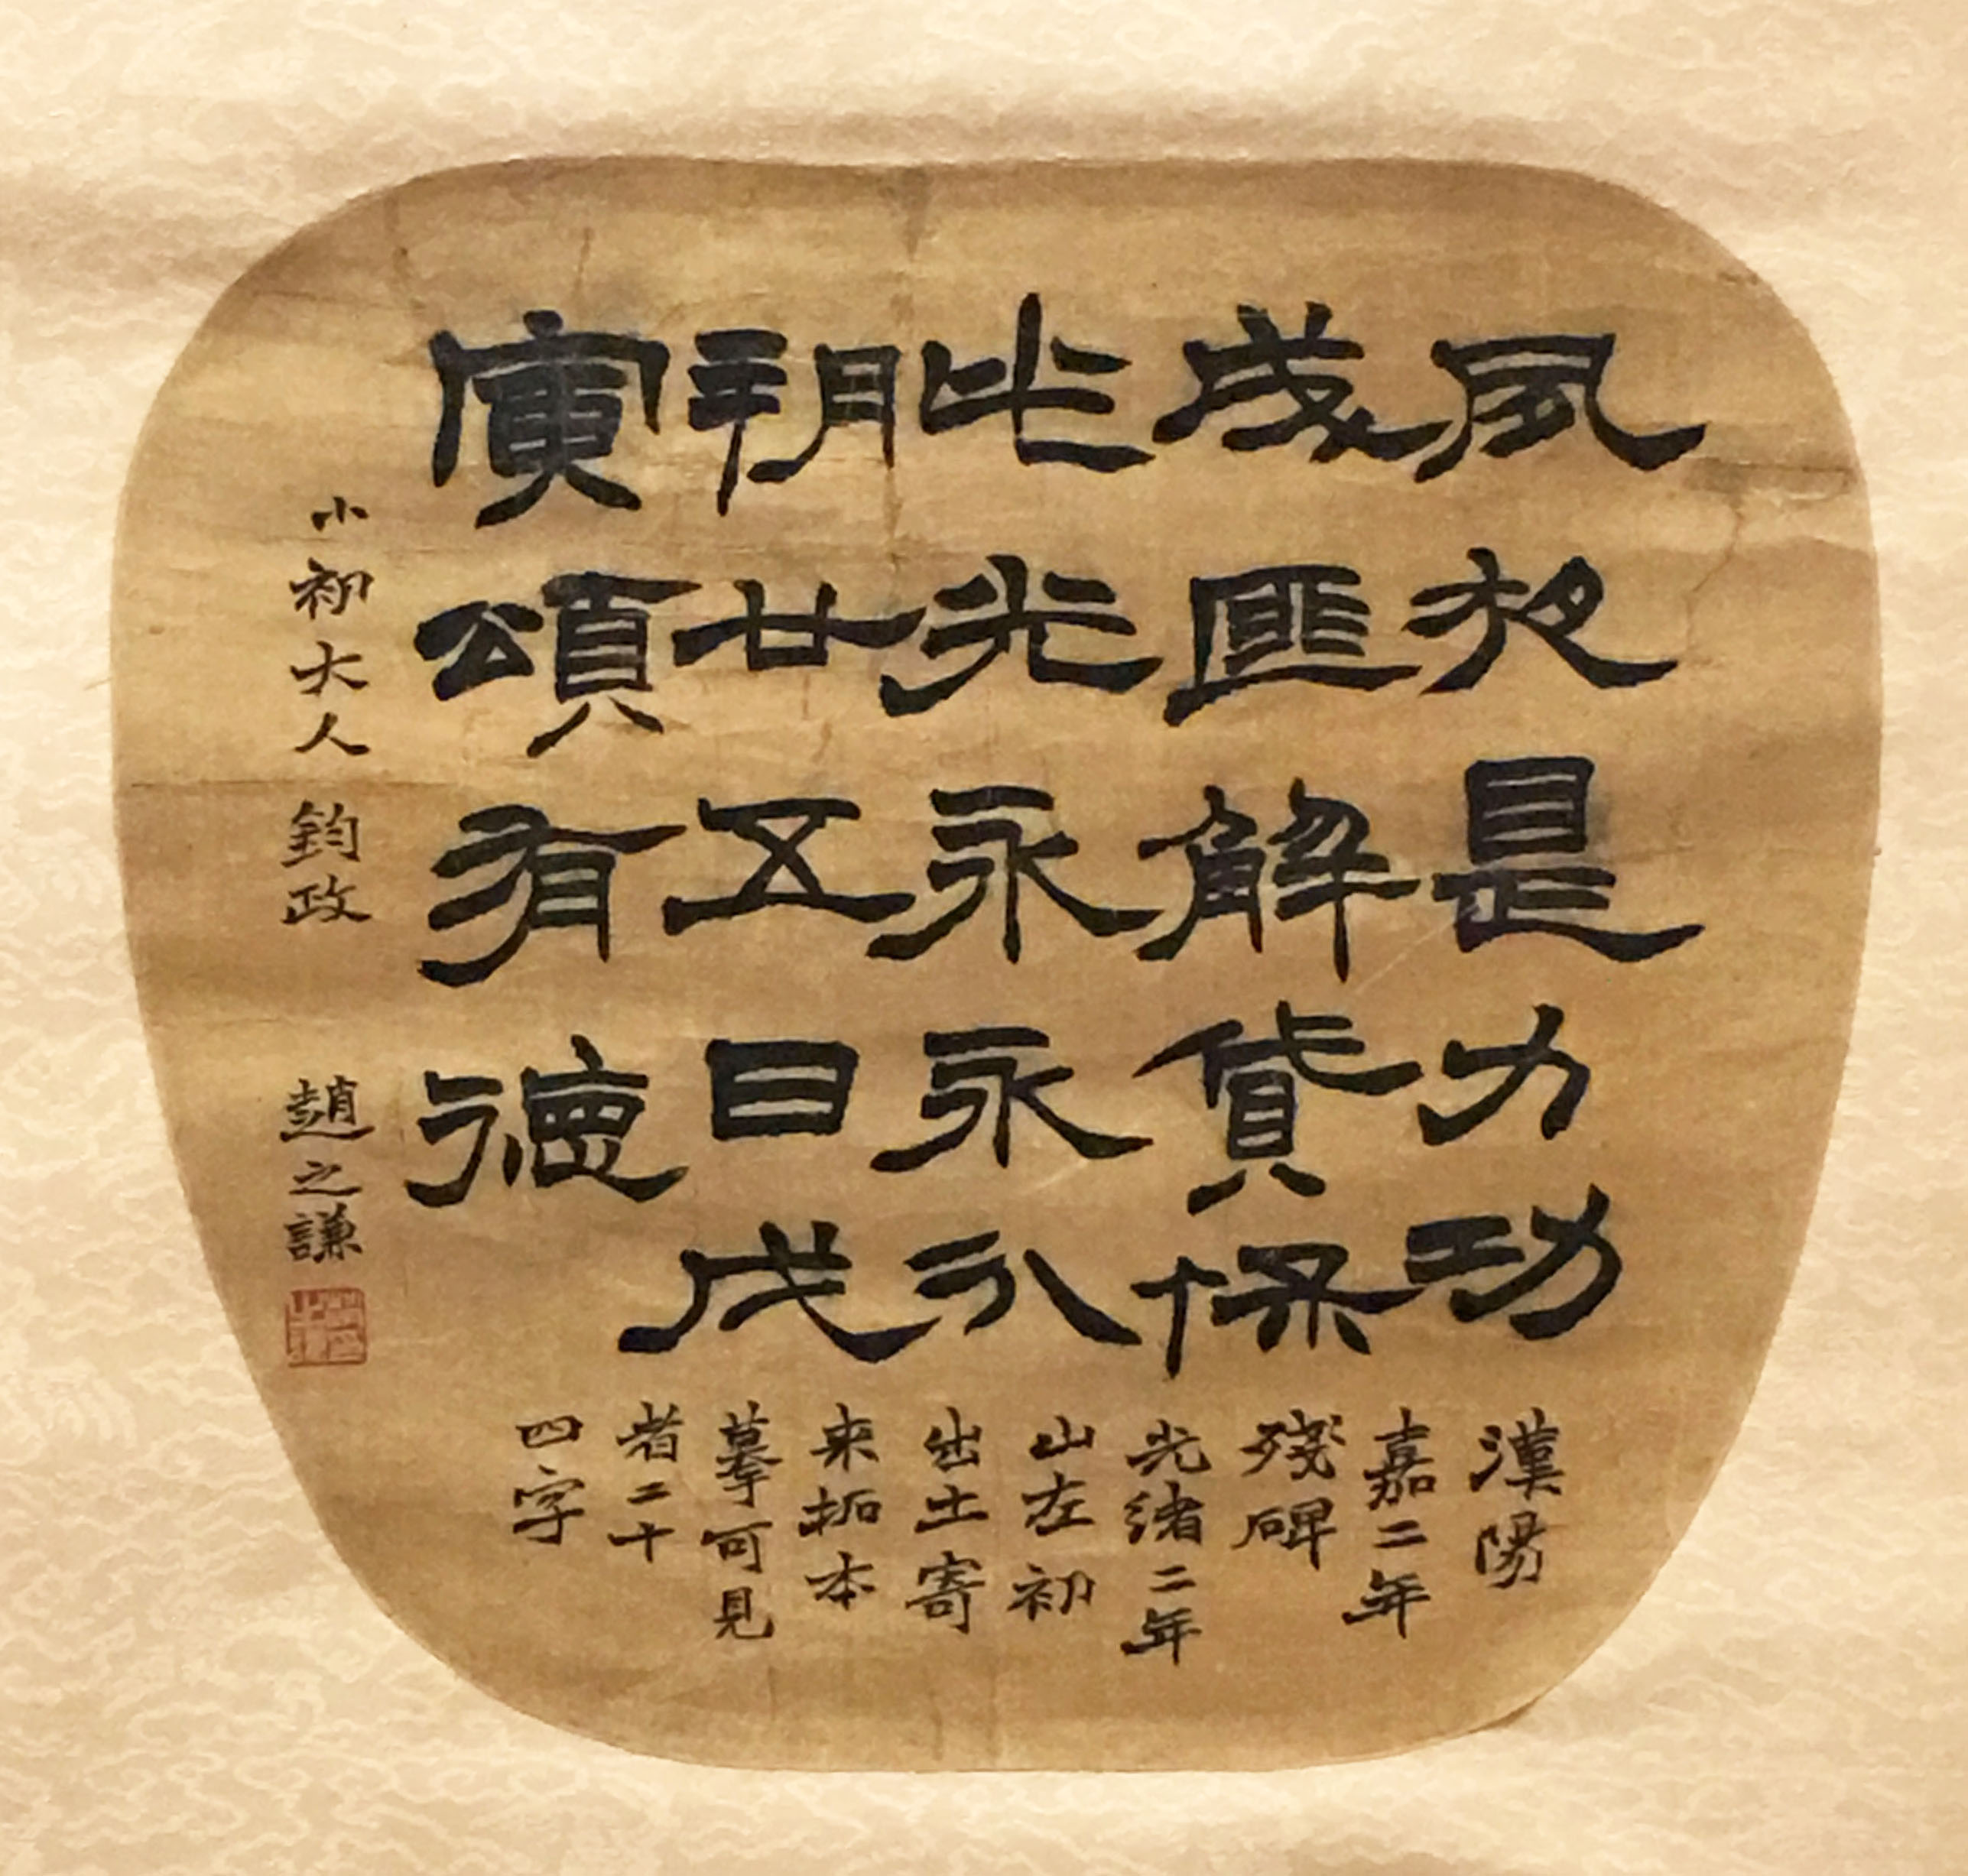 夙夜是力功
茂匪解貸保
比光永永
朔廿五日戊
寅頌有德
漢陽
嘉二年
殘碑
光緒二年
山左初
出土寄
来拓本
摹可見
者二十
四字
小初大人 鈞政 趙之謙